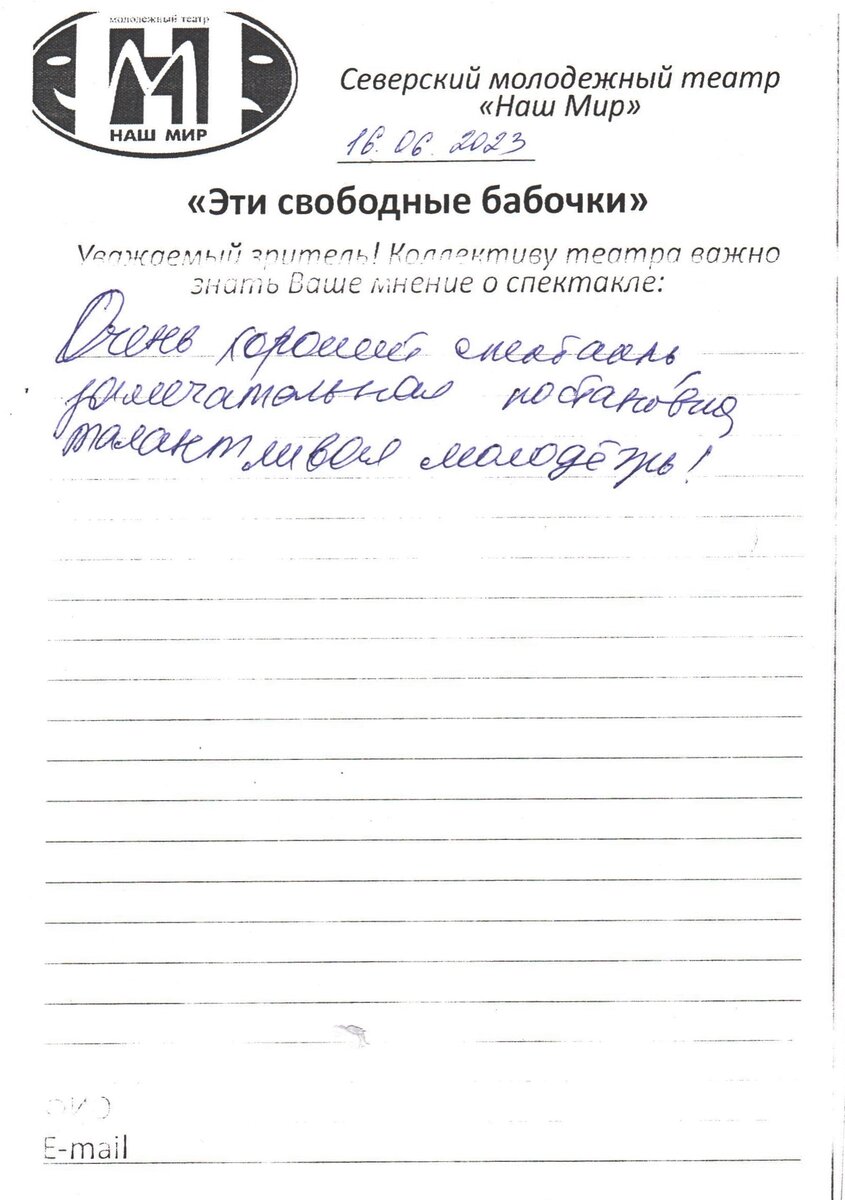 молодежный театр
НАШ МИР
Северский молодежный театр
«Наш Мир»
16. 06. 2023
«Эти свободные бабочки»
Уважаемый зритель! Коллективу театра важно
знать Ваше мнение о спектакле:
Очень хороший спектакль,
замечательная постановка,
талантливая молодёжь!
ФИО
E-mail